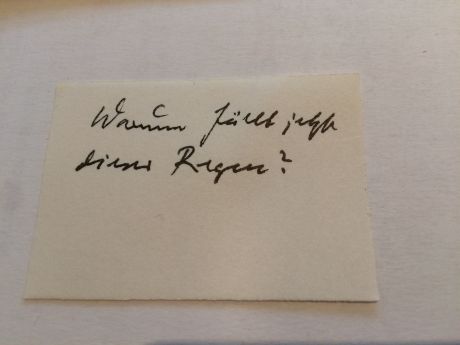 Warum fällt jetzt
dieser Regen?